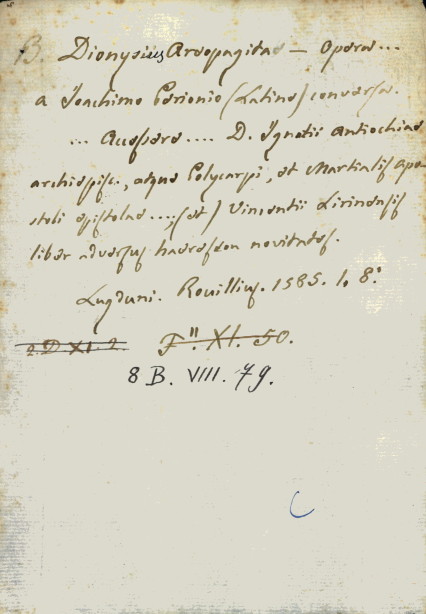 B. Dionysius Areopagitae — Opera...
a Joachimo Perionio (Latine) conversa.
... Accessere .... D. Ignatii Antiochiae
archiepisc., atque Polycarpi, et Martialis Apo-
stoli epistolae ...; (et) Vincentii Lirinensis
liber adversus haereseon novitates.
Lugduni. Rouillius. 1585. 1. 8.°
2. D XI. 2. F". XI. 50.
8 B. VIII. 79.
C